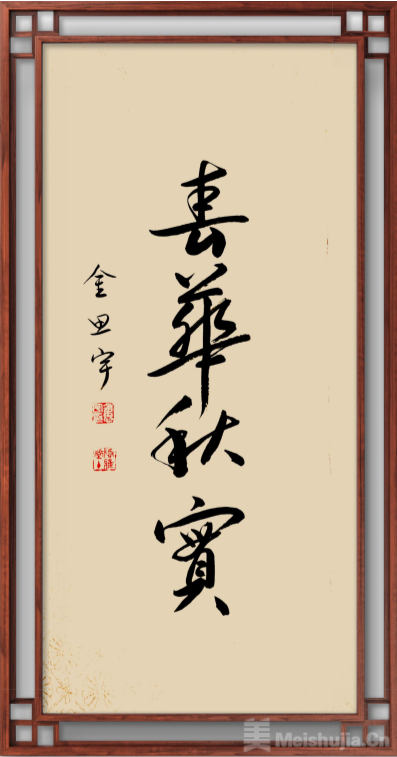 春華秋實
金思宇
美 Meishujia.Cn